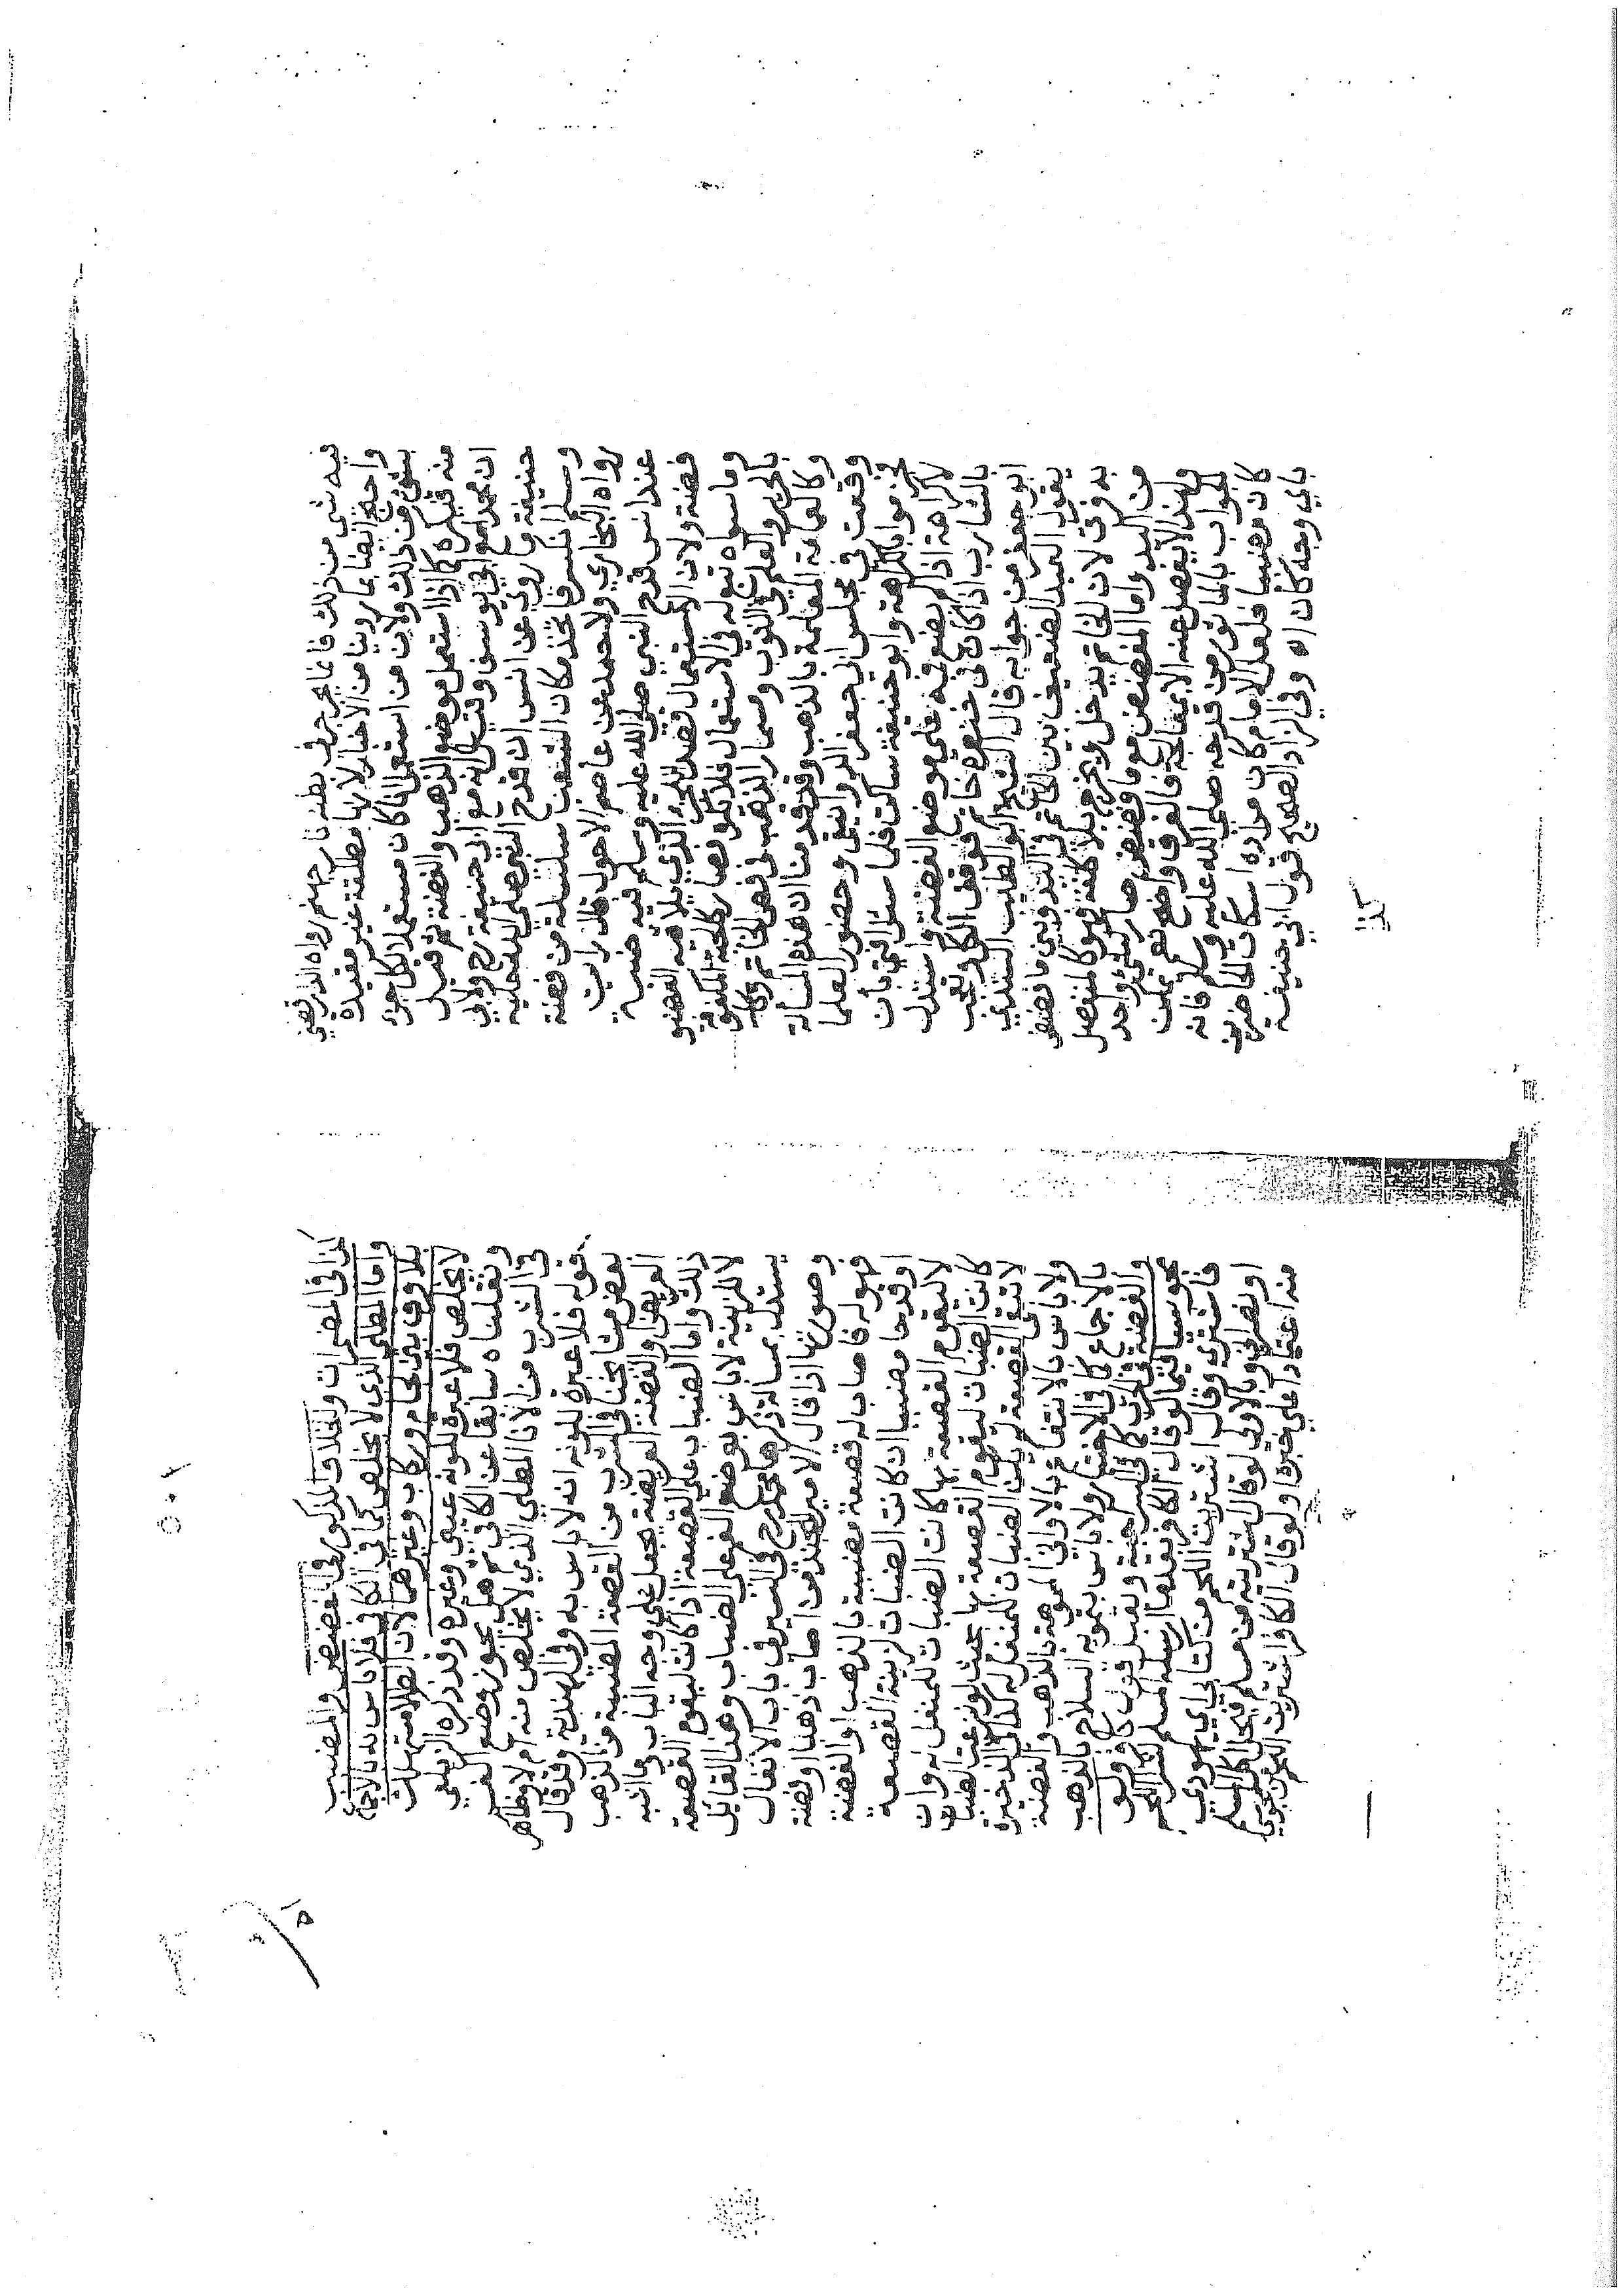 فيه شي من ذلك فانما يجرجر في بطنه نار جهنم رواه الدارقطني
واحتج ايضا بما روينا من الاخبار لانها مطلقة غير مقيدة
بشئ من ذلك ولان من استعمل اناء كان مستعملا لكل جزء
منه فيكره كما اذا استعمل موضع الذهب والفضة ثم قيل
ان محمدا مع ابي يوسف وقيل انه مع ابي حنيفة رح ولابي
حنيفة ما روي عن انس ان قدح النبي صلى الله عليه
وسلم انكسر فاتخذ مكان الشعب سلسلة من فضة
رواه البخاري ولاحمد عن عاصم الاحول قال رايت
عند انس قدح النبي صلى الله عليه وسلم فيه ضبة
فضة ولان الاستعمال قصد للجزء الذي يلاقيه العضو
وما سواه تبع له في الاستعمال فلا يكره فصار كالجبة المكفوفة
بالحرير والعلم في الثوب ومسمار الذهب في فص الخاتم وكا
وكالعمامة المعلمة بالذهب وقد قدمنا ان هذه المسألة
وقعت في مجلس ابي جعفر الدوانيقي وحضور العلما
فجزموا بالكراهة وابو حنيفة ساكت فلما سئل افتي بأن
لا كراهة اذا لم يضع فيه علي موضع الفضة واستدل
بالشارب اذا كان في خنصره خاتم فوقف الكل وتعجب
ابو جعفر من جوابه قال الشيخ ابو الطيب السندي
يقول العبد الضعيف بين الخاتم في اليد وبين ما فضض
به فرق لان الخاتم يدخل ويخرج بلا كلفة فهو كالمنفصل
من اليد واما المفضض مع ما فضض صار كشئ واحد
ولهذا لا ينفصل عنه الا بمعالجة فالفرق واضح نعم يمكن
الجواب بالماثور من قدحه صلي الله عليه وسلم فانه
كان مضببا فلعل الامام كان مراده اسكات الحاضرين
باي وجه كان اه وفي الزاد الصحيح قول ابي حنيفة
كذا
كذا في المضمرات والخلاف المذكور في المفضض والمضبب
واما المطلي الذي لا يخلص كما في الكافي فلا باس به بالاجماع
بلا فرق بين لجام وركاب وغيرهما لان الطلا مستهلك
لا يخلص فلا عبرة للونه عيني وغيره وقد ذكره الزيلعي
ونقلناه سابقا عن الكافي ثم هل يجوز وضع الفم
في الشرب من الانا المطلي الذي لا يخلص منه ام لا وظاهر
قوله فلا عبرة للونه انه لا باس به وفي الهندية وقد قال
بعض مشايخنا في الشرب من القصعة المضببة من الذهب
العريض والفضة العريضة يجعل علي وجه الباب وما اشبه
ذلك واما الضباب علي القصعة اذا كانت ليقوم القصعة
لا للزينة لا باس بوضع الفم علي الضباب وهذا القائل
يستدل بمسالة ذكرها محمد رح في السير في باب الانفال
وصورتها اذا قال الامير للجند من اصاب ذهبا او فضة
فهو له فاصاب له قصعة مضببة بالذهب او الفضة
او قدحا مضببا ان كانت الضبات لزينة القصعة
لا ليقوم القصعة بها كانت الضبات للمنفل له وان
كانت الضبات ليقوم القصعة بها بحيث لو نزعت الضبات
لا تبقي القصعة لم يكن الضبات للمنفل له كذا في الذخيرة
ولا باس بالانتفاع بالاواني المموهة بالذهب والفضة
بالاجماع كما في الاختيار ولا باس بتمويه السلاح بالذهب
والفضة في الحرب كما في السراجية ويقبل قول كافر ولو
مجوسيا فيما لو قال الكافر بعدما ارسله المسلم لشرا لحم
فاشتري وقال اشتريت اللحم من كتابي اي يهودي
او نصراني وبالاولي لو قال اشتريته من مسلم فيحل اكله للمسلم
منه اعتمادا علي خبره او لو قال الكافر اشتريت اللحم من مجوسي